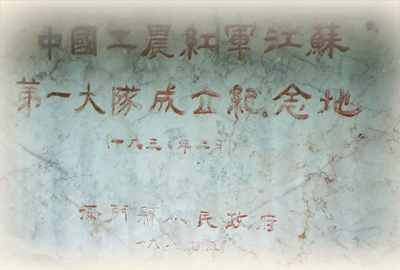 中國工農紅軍江蘇
第一大隊成立紀念地
(一九三〇年二月)
海門縣人民政府
一九八 年